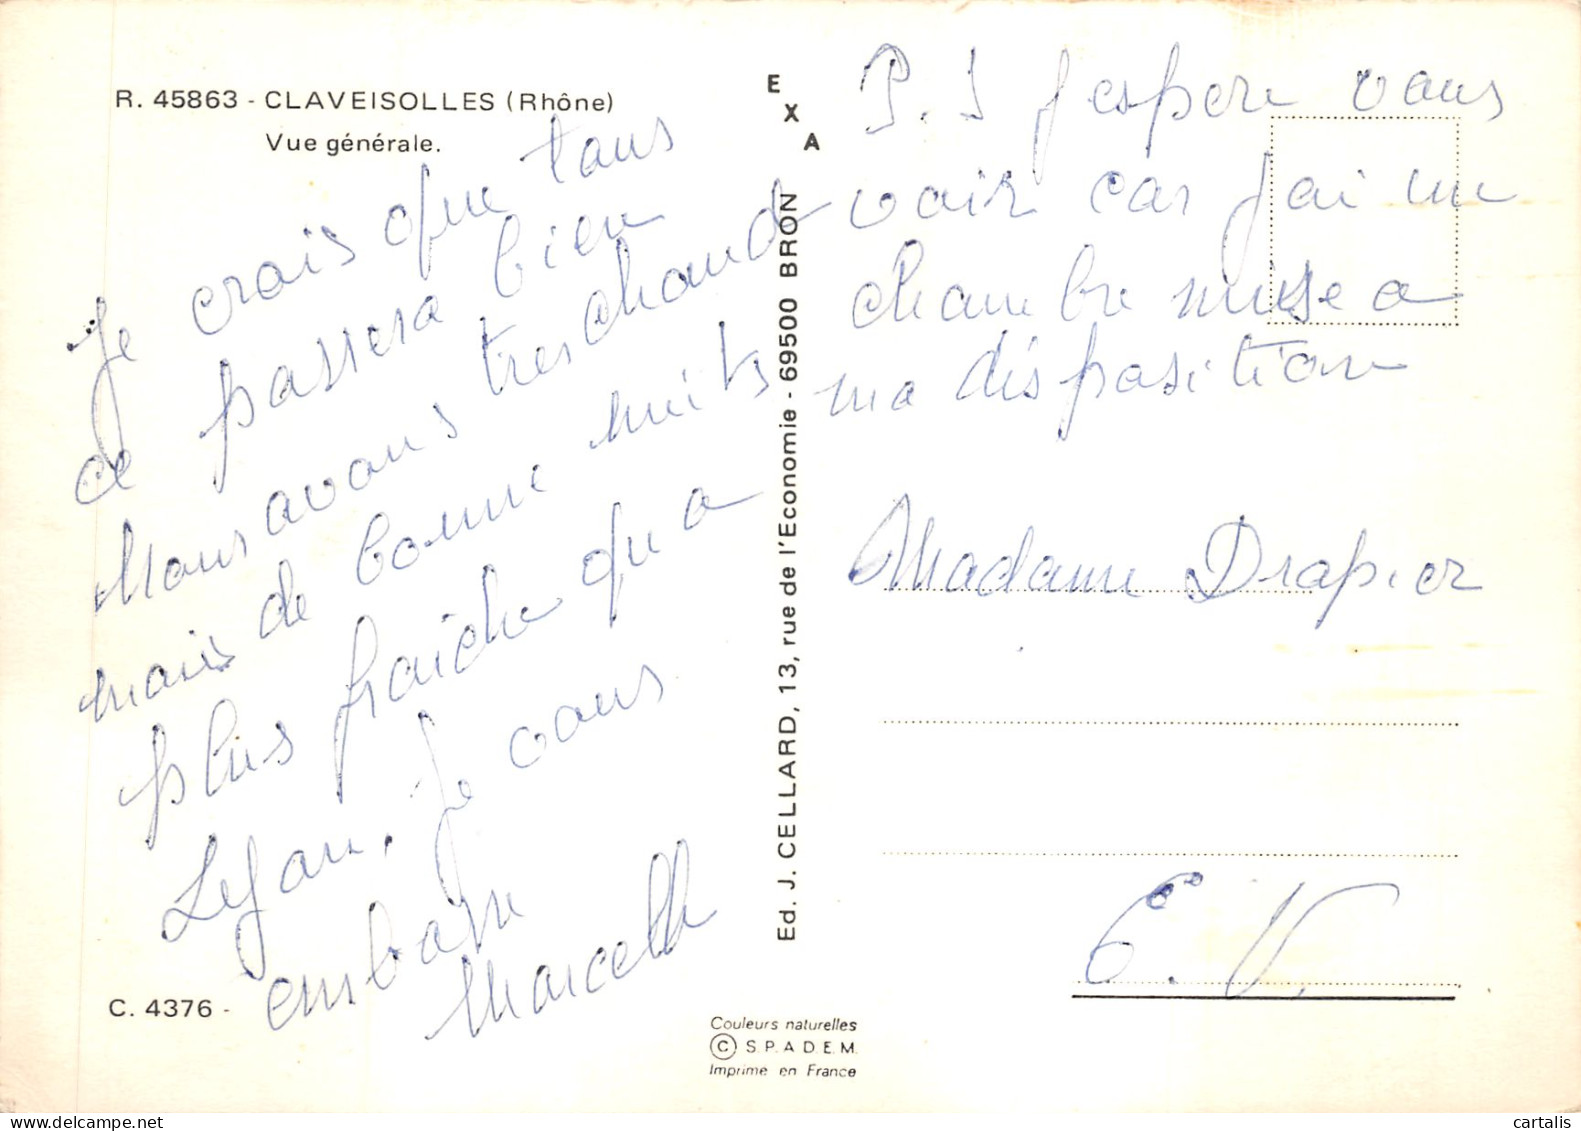 R. 45863 - CLAVEISOLLES (Rhône)
Vue générale.
Je crois que tous
ce passera bien
Nous avons tres chaud
mais de bonne nuits
plus fraiche qu a
Lefau. Je vous
embasse
Marcelle
C. 4376 -
E
X
A
Ed. J. CELLARD, 13, rue de l'Economie - 69500 BRON
Couleurs naturelles
© S.P.A.D.E.M.
Imprime en France
P.S J espere vous
voir car J ai une
chambre mise a
ma disposition
Madame Drapier
E. V.
cartalis